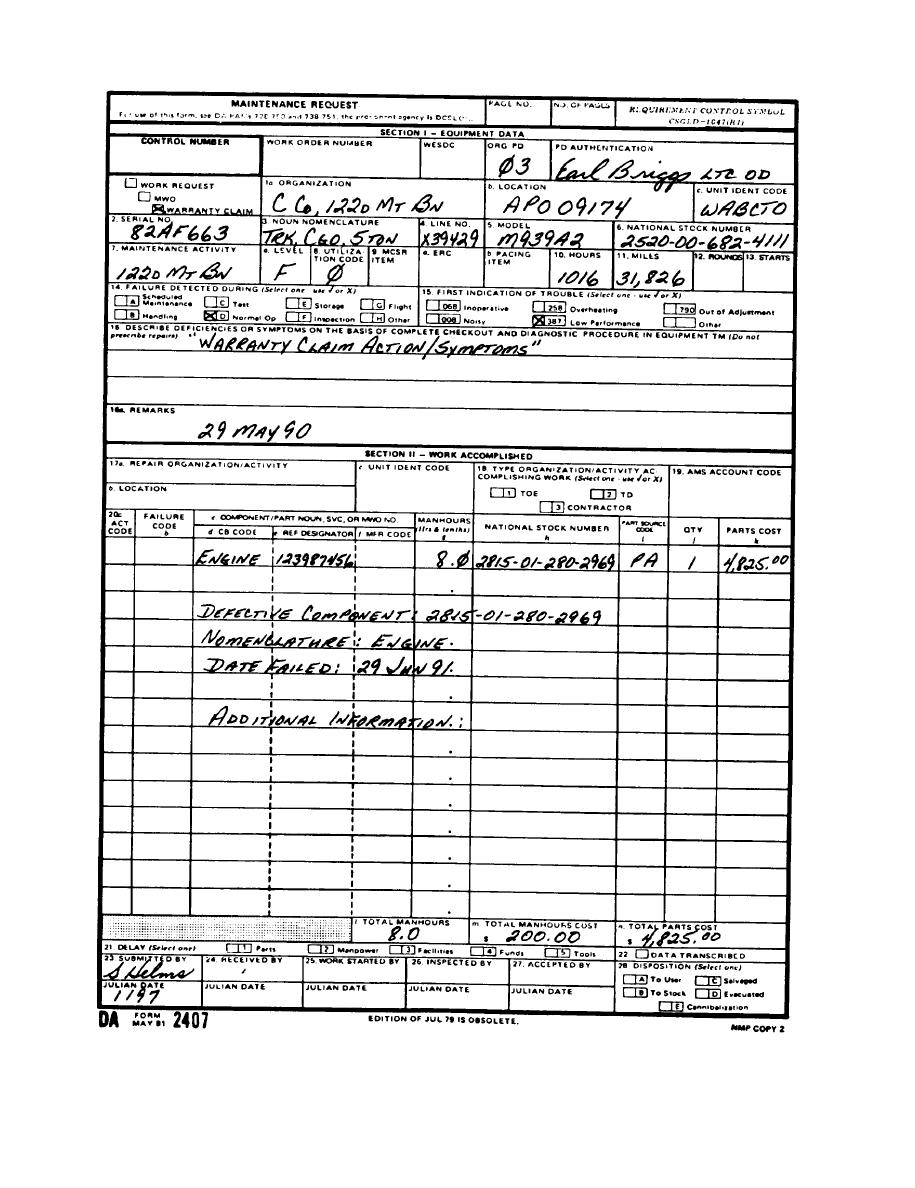 MAINTENANCE REQUEST
PAGE NO.
NO. OF PAGES
REQUIREMENT CONTROL SYMBOL
CSGLD-1047(R1)
SECTION I – EQUIPMENT DATA
CONTROL NUMBER
WORK ORDER NUMBER
WESDC
ORG PD
Ø3
PD AUTHENTICATION
Earl Briggs LTC OD
WORK REQUEST
MWO
WARRANTY CLAIM
1a. ORGANIZATION
C Co, 122D MT BN
b. LOCATION
APO 09174
c. UNIT IDENT CODE
WABCTO
2. SERIAL NO.
82AF663
3 NOUN NOMENCLATURE
TRK, CGO, 5TON
4. LINE NO.
X39429
5. MODEL
M939A2
6. NATIONAL STOCK NUMBER
2520-00-682-4111
7. MAINTENANCE ACTIVITY
122D MT BN
a. LEVEL
F
8 UTILIZATION CODE
Ø
9 MCSR ITEM
a. ERC
b PACING ITEM
10. HOURS
1016
11. MILES
31,826
12. ROUNDS
13. STARTS
14. FAILURE DETECTED DURING (Select one - use √ or X)
A Scheduled Maintenance
C Test
E Storage
G Flight
B Handling
D Normal Op
F Inspection
H Other
15. FIRST INDICATION OF TROUBLE (Select one - use √ or X)
068 Inoperative
258 Overheating
790 Out of Adjustment
008 Noisy
387 Low Performance
Other
16 DESCRIBE DEFICIENCIES OR SYMPTOMS ON THE BASIS OF COMPLETE CHECKOUT AND DIAGNOSTIC PROCEDURE IN EQUIPMENT TM (Do not prescribe repairs)
"WARRANTY CLAIM ACTION/SYMPTOMS"
16a. REMARKS
29 MAY 90
SECTION II – WORK ACCOMPLISHED
17a. REPAIR ORGANIZATION/ACTIVITY
c UNIT IDENT CODE
18 TYPE ORGANIZATION/ACTIVITY ACCOMPLISHING WORK (Select one - use √ or X)
19. AMS ACCOUNT CODE
b. LOCATION
1 TOE
2 TD
3 CONTRACTOR
20a ACT CODE
FAILURE CODE b
c COMPONENT/PART NOUN, SVC, OR MWO NO.
d CB CODE
e REF DESIGNATOR
f MFR CODE
MANHOURS (Hrs & tenths) g
NATIONAL STOCK NUMBER h
PART SOURCE CODE i
QTY j
PARTS COST k
ENGINE 123987456 8.Ø 2815-01-280-2969 PA 1 4,825.00
DEFECTIVE COMPONENT: 2815-01-280-2969
NOMENCLATURE: ENGINE.
DATE FAILED: 29 JUN 91.
ADDITIONAL INFORMATION.:
l TOTAL MANHOURS
8.0
m TOTAL MANHOURS COST
$ 200.00
n. TOTAL PARTS COST
$ 4,825.00
21. DELAY (Select one)
1 Parts
2 Manpower
3 Facilities
4 Funds
5 Tools
22 DATA TRANSCRIBED
23 SUBMITTED BY
S Helms
24. RECEIVED BY
25. WORK STARTED BY
26. INSPECTED BY
27. ACCEPTED BY
28 DISPOSITION (Select one)
A To User
C Salvaged
B To Stock
D Evacuated
E Cannibalization
JULIAN DATE
1197
JULIAN DATE
JULIAN DATE
JULIAN DATE
JULIAN DATE
DA FORM MAY 81 2407
EDITION OF JUL 79 IS OBSOLETE.
NMP COPY 2